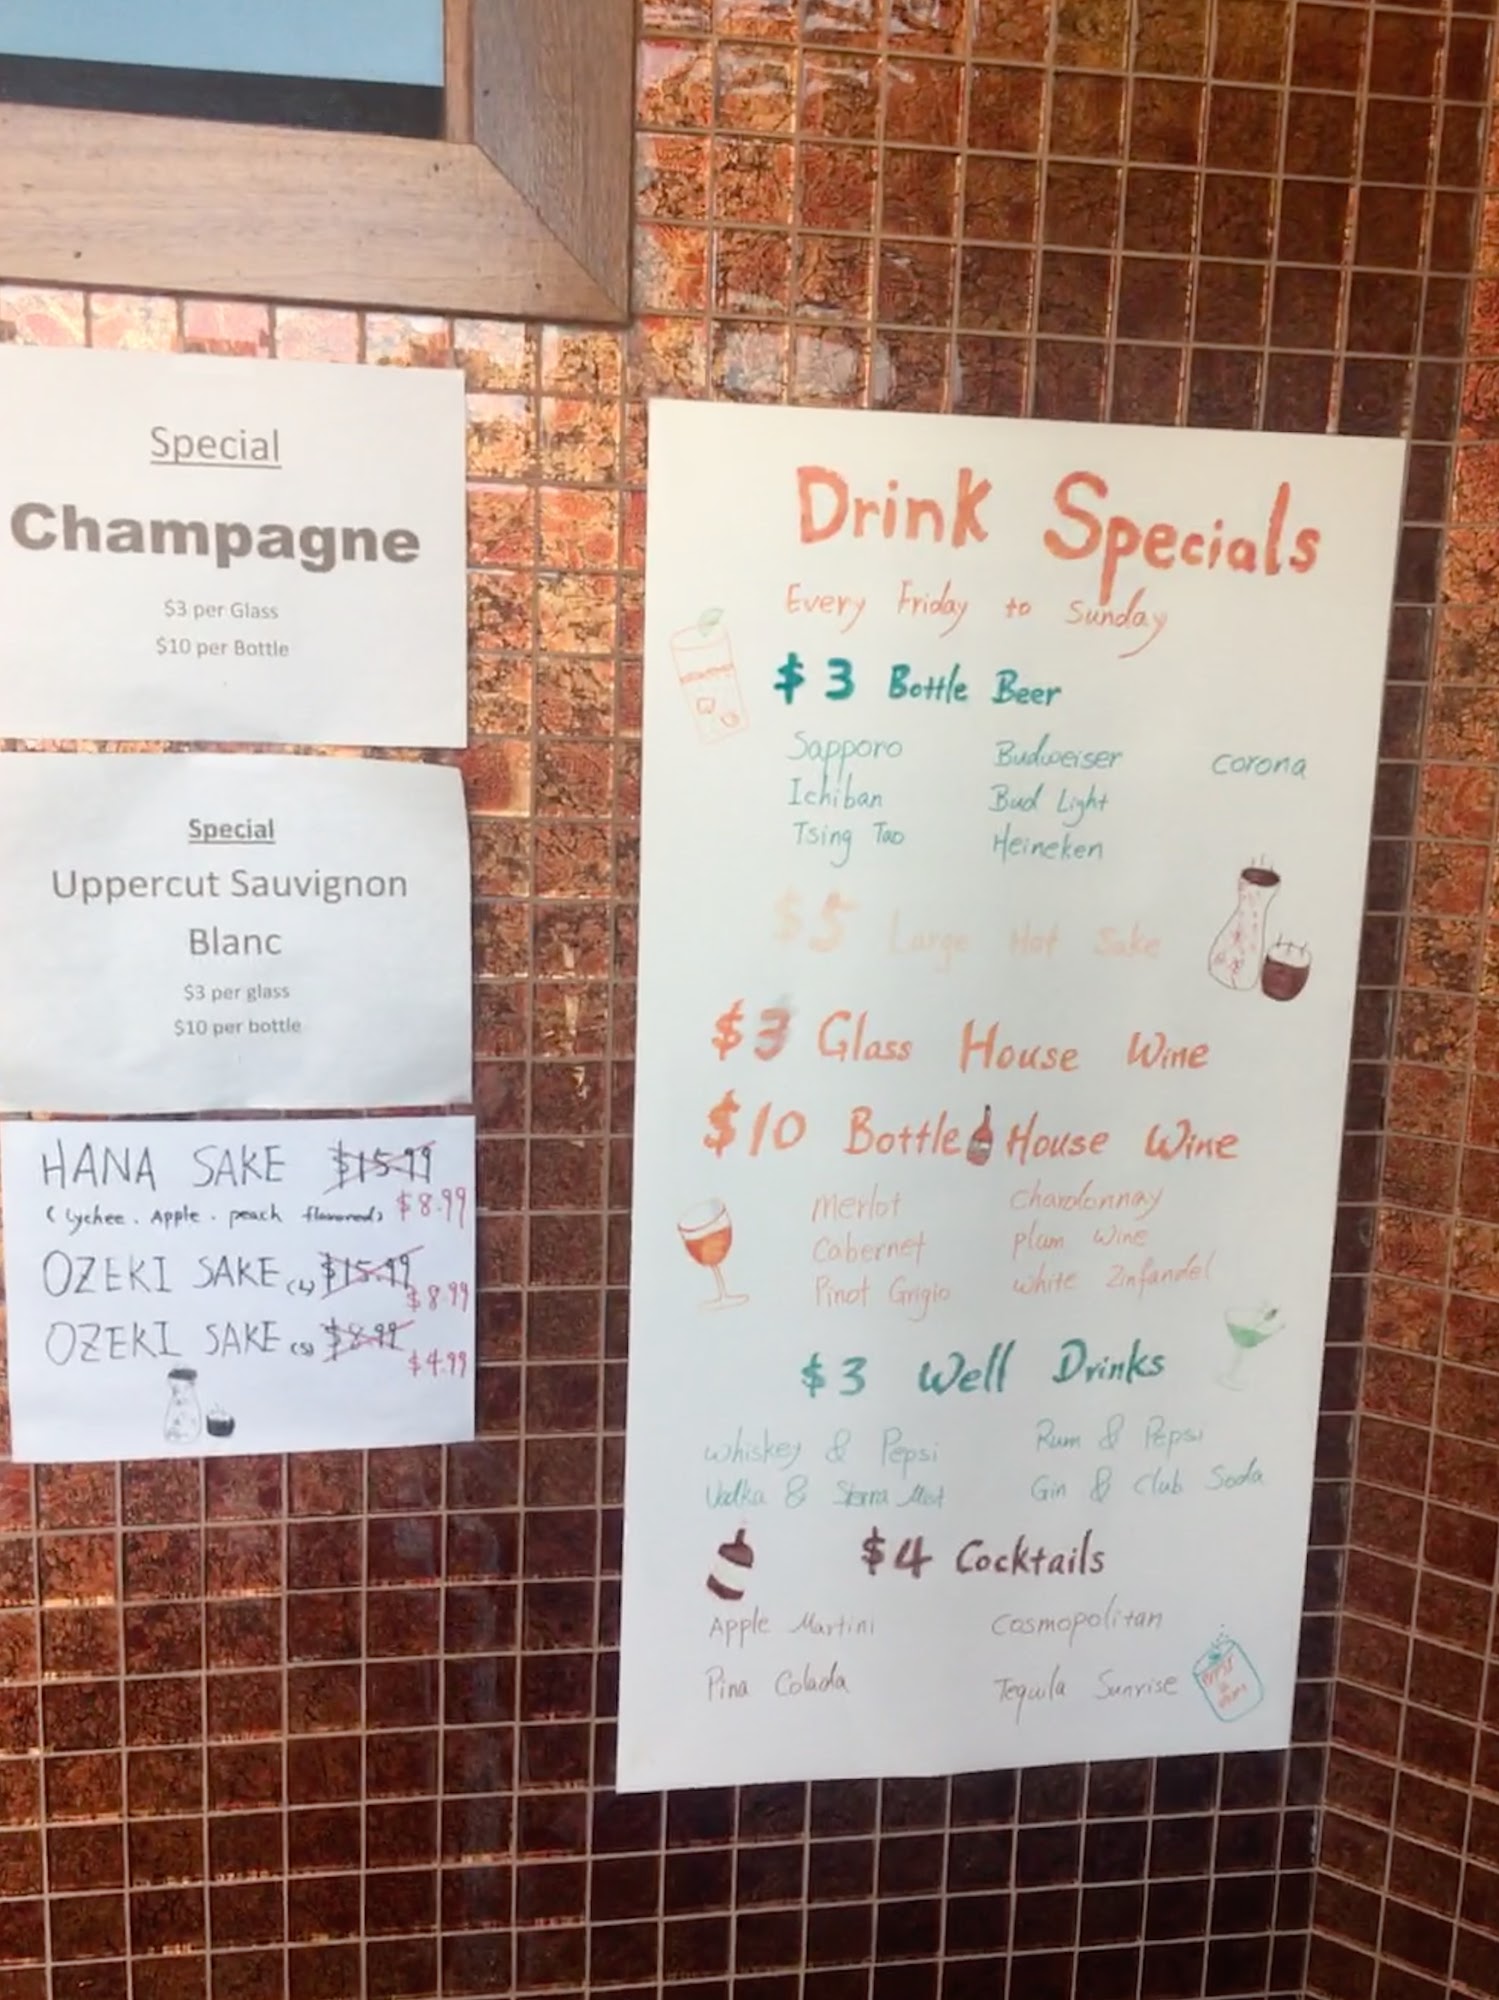 Special
Champagne
$3 per Glass
$10 per Bottle
Special
Uppercut Sauvignon
Blanc
$3 per glass
$10 per bottle
HANA SAKE $15.99
(Lychee. Apple. peach flavored) $8.99
OZEKI SAKE (L) $15.99
$8.99
OZEKI SAKE (S) $8.99
$4.99
Drink Specials
Every Friday to Sunday
$3 Bottle Beer
Sapporo Budweiser corona
Ichiban Bud Light
Tsing Tao Heineken
$5 Large Hot Sake
$3 Glass House Wine
$10 Bottle House Wine
Merlot Chardonnay
Cabernet Plum Wine
Pinot Grigio White Zinfandel
$3 Well Drinks
Whiskey & Pepsi Rum & Pepsi
Vodka & Sierra Mist Gin & Club Soda
$4 Cocktails
Apple Martini Cosmopolitan
Pina Colada Tequila Sunrise